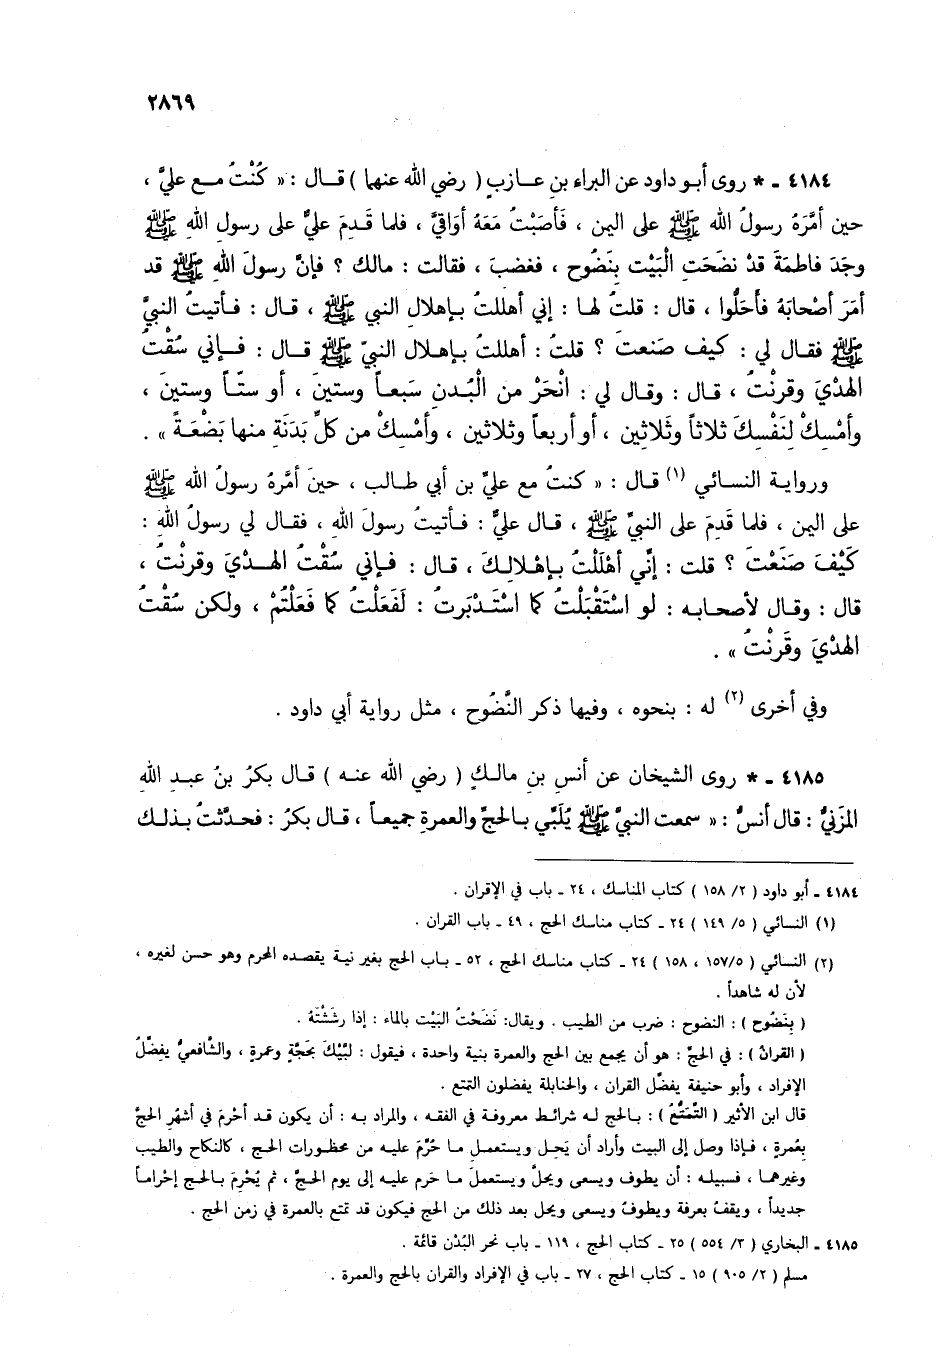 ٢٨٦٩
٤١٨٤ ـ * روى أبو داود عن البراء بن عازبٍ ( رضي الله عنهما ) قال : « كُنْتُ مع عليٍّ ،
حين أمَّرَهُ رسولُ الله ﷺ على اليمن ، فَأصَبْتُ مَعَهُ أوَاقيَّ ، فلما قَدِمَ عليٌّ على رسولِ اللهِ ﷺ
وجَدَ فاطمَةَ قدْ نضَحَتِ الْبَيْتِ بِنَضُوحٍ ، فغضبَ ، فقالت : مالك ؟ فإنَّ رسولَ اللهِ ﷺ قد
أمَرَ أصْحابَهُ فأَحَلُّوا ، قال : قلتُ لها : إني أهللتُ بإهلالِ النبي ﷺ ، قال : فأتيتُ النبيَّ
ﷺ فقال لي : كيف صَنعت ؟ قلتُ : أهللتُ بإهلال النبيّ ﷺ قال : فإني سُقْتُ
الهدْيَ وقرنْتُ ، قال : وقال لي : انْحَرْ من الْبُدنِ سَبعاً وستينَ ، أو ستّاً وستينَ ،
وأمْسِكْ لِنَفْسِكَ ثلاثاً وثَلاثين ، أو أربعاً وثلاثين ، وأمْسِكْ من كلِّ بَدَنَةٍ منها بَضْعَةً » .
ورواية النسائي (١) قال : « كنتُ مع عليِّ بن أبي طالب ، حينَ أمَّرهُ رسولُ الله ﷺ
على اليمن ، فلما قَدِمَ على النبيِّ ﷺ ، قال عليٌّ : فأتيتُ رسولَ اللهِ ، فقال لي رسولُ اللهِ :
كَيْفَ صَنَعْتَ ؟ قلت : إنِّي أهْلَلْتُ بإهْلالِكَ ، قال : فإني سُقْتُ الهدْيَ وقرنْتُ ،
قال : وقال لأصحابه : لو اسْتَقْبَلْتُ كما اسْتَدْبَرتُ : لَفَعَلْتُ كما فَعَلْتُمْ ، ولكن سُقْتُ
الهدْيَ وقَرنْتُ » .
وفي أخرى (٢) له : بنحوه ، وفيها ذكر النَّضُوح ، مثل رواية أبي داود .
٤١٨٥ ـ * روى الشيخان عن أنسِ بنِ مالكٍ ( رضي الله عنه ) قال بكرُ بنُ عبدِ اللهِ
المزَنيُّ : قال أنسٌ : « سمعت النبيَّ ﷺ يُلَبِّي بالحجِّ والعمرةِ جميعاً ، قال بكرٌ : فحدَّثتُ بذلك
٤١٨٤ ـ أبو داود ( ٢/ ١٥٨ ) كتاب المناسك ، ٢٤ ـ باب في الإقران .
(١) النسائي ( ٥/ ١٤٩ ) ٢٤ ـ كتاب مناسك الحج ، ٤٩ ـ باب القران .
(٢) النسائي ( ١٥٧/٥ ، ١٥٨ ) ٢٤ ـ كتاب مناسك الحج ، ٥٢ ـ باب الحج بغير نية يقصده المحرم وهو حسن لغيره ،
لأن له شاهداً .
( بِنَضُوحٍ ) : النضوح : ضرب من الطيب . ويقال: نَضَحْتُ البَيْتَ بالماء : إذا رشَشْتَهُ .
( القرانُ ) : في الحجّ : هو أن يجمع بين الحج والعمرة بنية واحدة ، فيقول : لبَّيْكَ بحَجَّةٍ وعمرةٍ ، والشَّافعيُّ يفضِّلُ
الإفراد ، وأبو حنيفة يفضِّل القران ، والحنابلة يفضلون التمتع .
قال ابن الأثير ( التَّمَتُّعُ ) : بالحج له شرائط معروفة في الفقه ، والمراد به : أن يكون قد أحْرمَ في أشهُرِ الحجّ
بعُمرةٍ ، فإذا وصل إلى البيت وأراد أن يَحِل ويستعمل ما حُرِّمَ عليه من محظورات الحج ، كالنكاح والطيب
وغيرهما ، فسبيله : أن يطوف ويسعى ويحلَّ ويستعملَ ما حَرم عليه إلى يوم الحجِّ ، ثم يُحْرِمَ بالحج إحْراماً
جديداً ، ويقفُ بعرفة ويطوفُ ويسعى ويحل بعد ذلك من الحج فيكون قد تمتع بالعمرة في زمن الحج .
٤١٨٥ ـ البخاري ( ٣/ ٥٥٤ ) ٢٥ ـ كتاب الحج ، ١١٩ ـ باب نحر البُدْن قائمة .
مسلم ( ٢/ ٩٠٥ ) ١٥ ـ كتاب الحج ، ٢٧ ـ باب في الإفراد والقران بالحج والعمرة .